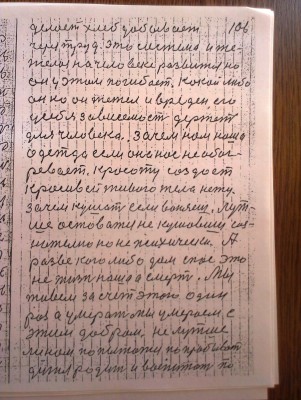 делает хлеб добывает 106
чем труд. Это система и те-
жела начеловеке развита но
он у этом погибает. Какой либо
он ко он тежел и вреден его
у себя зависемост держет
для человека. Зачем нам наша
одетда если она нас не обог-
ревает. Красоту создает
красивей живого тела нету.
Зачем кушат если воняеш. Лут-
ше остоватя не кушовши соз-
нателно но не психически. А
разве кого либо дом спас это
не жизн наша а смерт. Мы
живем за счет этого один
раз а умерат то умераем, с
этим добрам. не лутше
ли нам попитатя попробиват
дитя родит и воспитат по